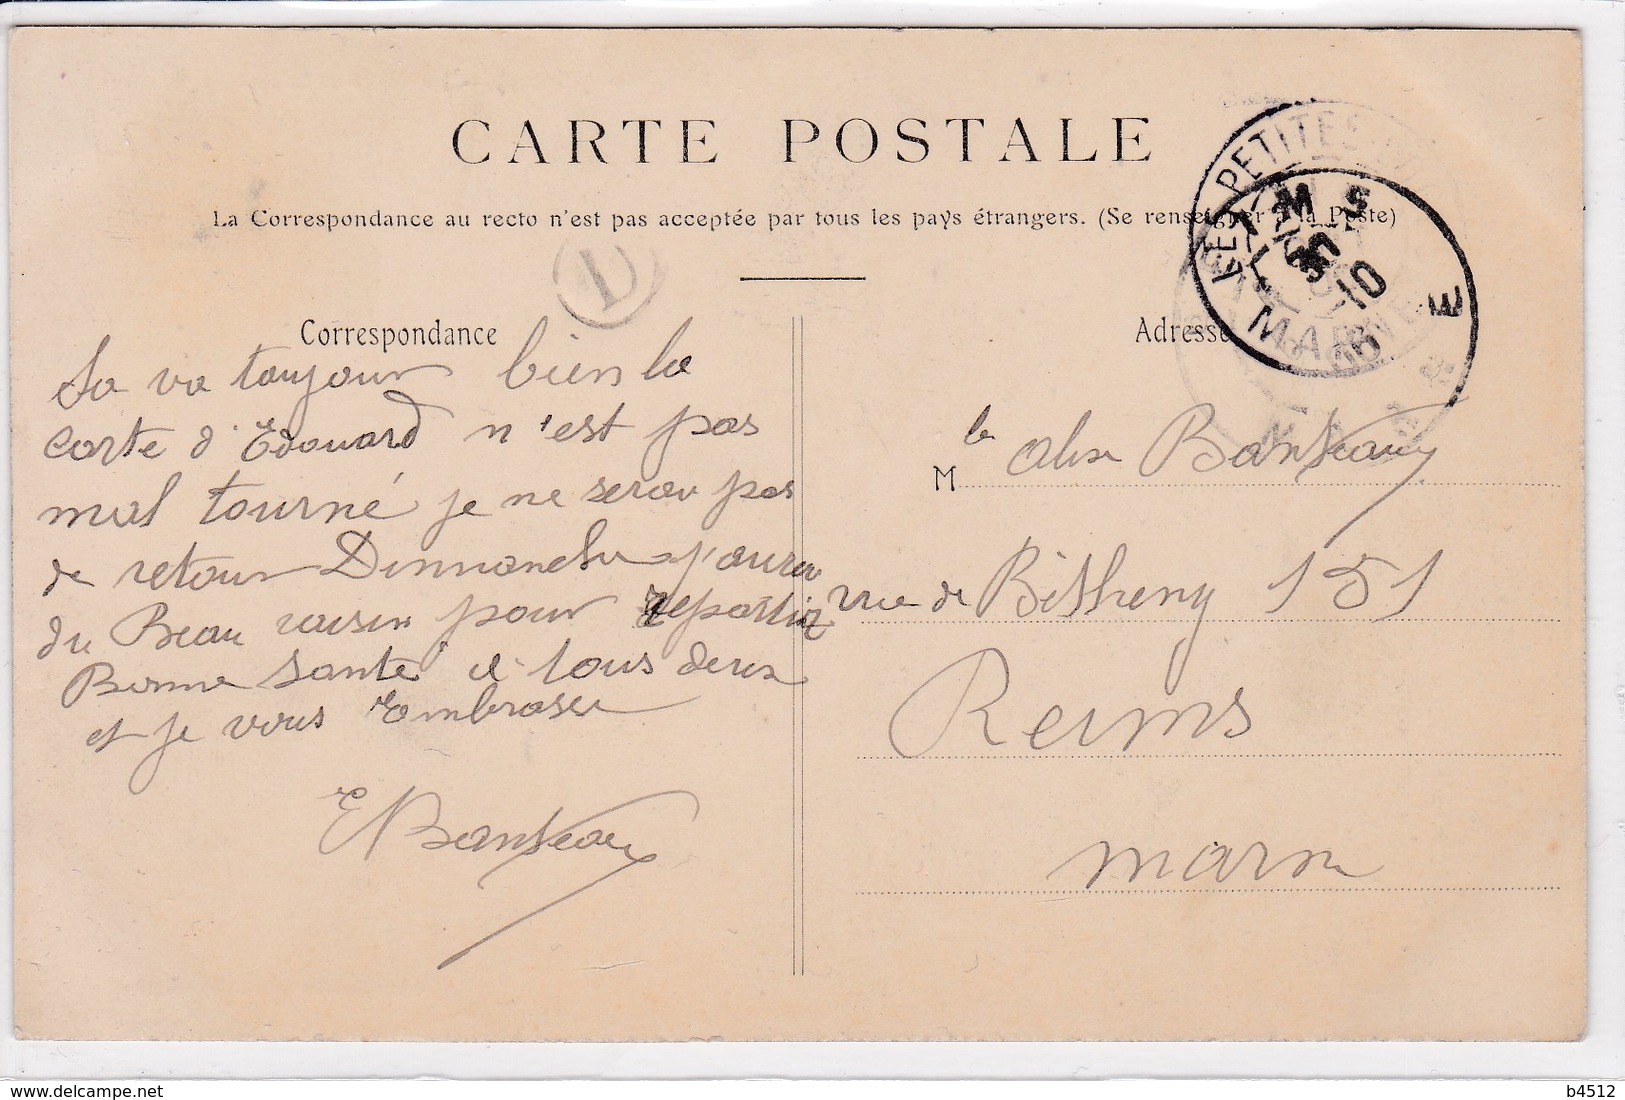 CARTE POSTALE
La Correspondance au recto n'est pas acceptée par tous les pays étrangers. (Se renseigner à la Poste)
Correspondance
Sa va toujour bien la
carte d'Edouard n'est pas
mal tourné je ne serai pas
de retour Dimmanche j'aurai
du Beau raisin pour repartir
Bonne Santé a tous deux
et je vous Embrasse
E Banteaux
Adresse
M le Alix Banteaux
rue de Bétheny 151
Reims
marne
VERT-PETITES
MARNE
5 -10
b4512
delcampe.net